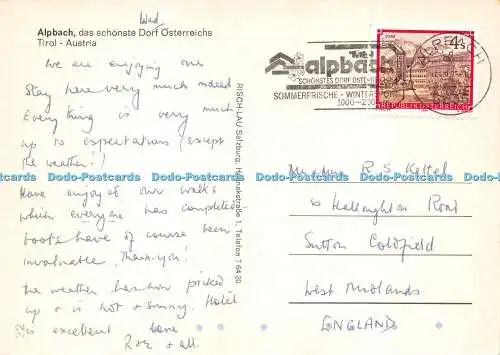 Wed
Alpbach, das schönste Dorf Österreichs
Tirol - Austria
We are enjoying our
Stay here very much indeed
Everything is very much
up to expectations (except
the weather!)
Have enjoy of our walks
which everyone has completed
boots have of course been
invaluable, Thank-you!
the weather has now picked
up & is hot & sunny. Hotel
is excellent love
R & all.
RISCH-LAU Salzburg, 1, Telefon 7 64 30
Tirol
alpbach
SCHÖNSTES DORF ÖSTERREICHS
SOMMERFRISCHE - WINTERSPORT
1000-2000
ALPBACH
4 S
REPUBLIK ÖSTERREICH
R S
Road
Sutton Coldfield
West Midlands
ENGLAND
Dodo-Postcards Dodo-Postcards Dodo-Postcards Dodo-Postcards Dodo-Postcards Dodo-Postcards